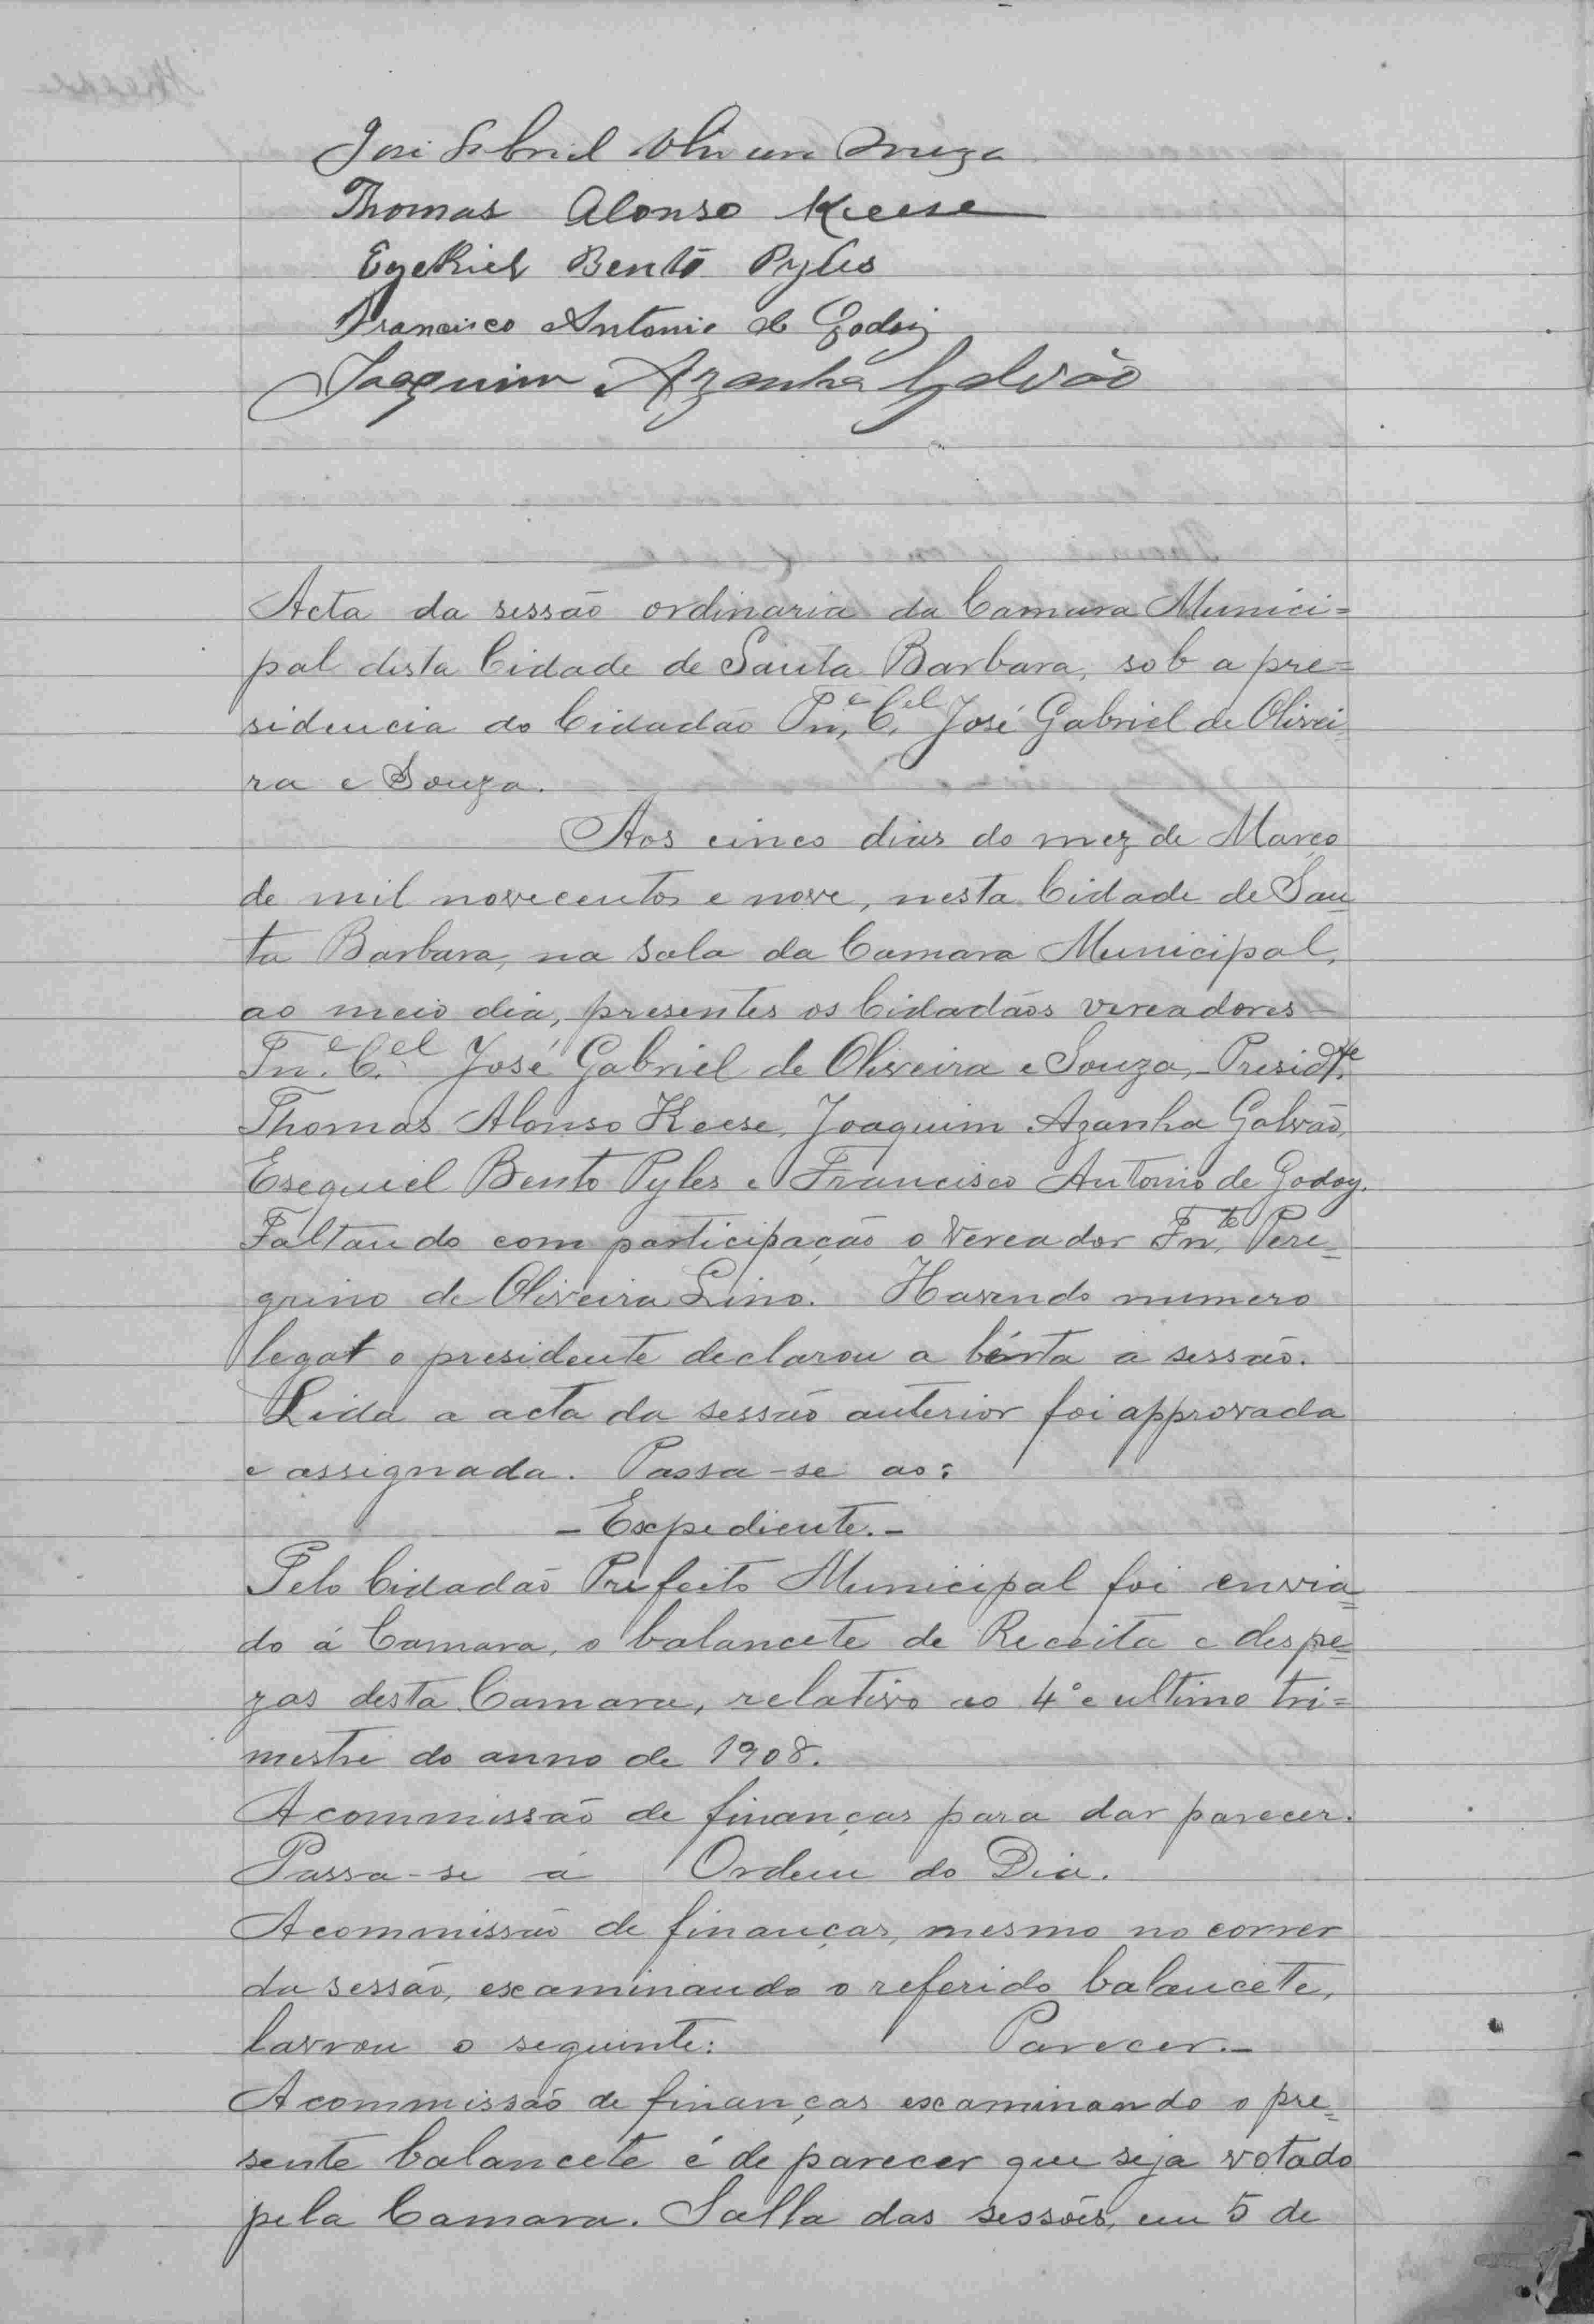 José Gabriel Oliveira Souza
Thomas Alonso Keese
Ezekiel Bento Pyles
Francisco Antonio de Godoi
Joaquim Azanha Galvão
Acta da sessão ordinaria da Camara Munici=
pal desta Cidade de Santa Barbara, sob a pre=
sidencia do Cidadão Tn.e C.el José Gabriel de Olivei
ra e Souza.
Aos cinco dias do mez de Março
de mil novecentos e nove, nesta Cidade de San
ta Barbara, na sala da Camara Municipal,
ao meio dia, presentes os Cidadãos vereadores
Tn.e C.el José Gabriel de Oliveira e Souza,-Presid.te
Thomas Alonso Keese, Joaquim Azanha Galvão,
Esequiel Bento Pyles e Francisco Antonio de Godoy.
Faltando com participação o Vereador Tn.te Pere=
grino de Oliveira Lino. Havendo numero
legal o presidente declarou a bérta a sessão.
Lida a acta da sessão anterior foi approvada
e assignada. Passa-se ao:
- Expediente.-
Pelo Cidadão Prefeito Municipal foi envia=
do á Camara, o balancete de Receita e despe=
zas desta Camara, relativo ao 4º e ultimo tri=
mestre do anno de 1908.
A commissão de finanças para dar parecer.
Passa-se á Ordem do Dia.
A commissão de finanças, mesmo no correr
da sessão, examinando o referido balancete,
lavrou o seguinte: Parecer.-
A commissão de finanças examinando o pre=
sente balancete é de parecer que seja votado
pela Camara. Salla das sessões, em 5 de